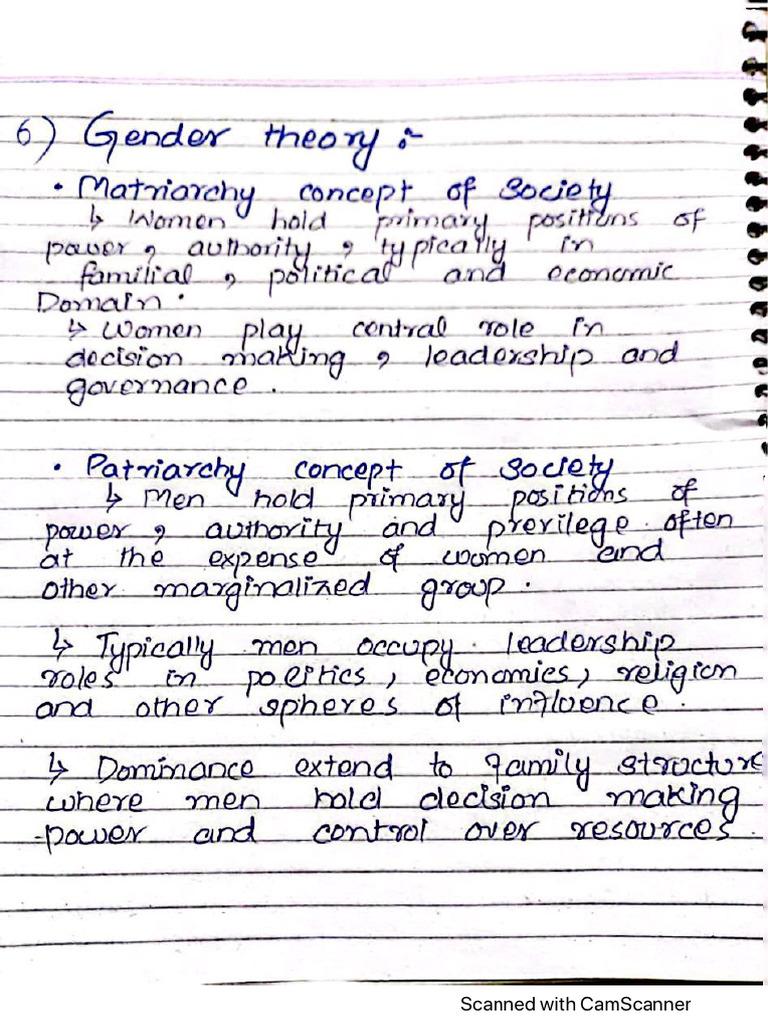 6) Gender theory :-
• Matriarchy concept of society
↳ Women hold primary positions of
power, authority, typically in
familial, political and economic
Domain.
↳ Women play central role in
decision making, leadership and
governance.
• Patriarchy concept of society
↳ Men hold primary positions of
power, authority and previlege often
at the expense of women and
other marginalized group.
↳ Typically men occupy leadership
roles in politics, economies, religion
and other spheres of influence.
↳ Dominance extend to family structure
where men hold decision making
power and control over resources.
Scanned with CamScanner